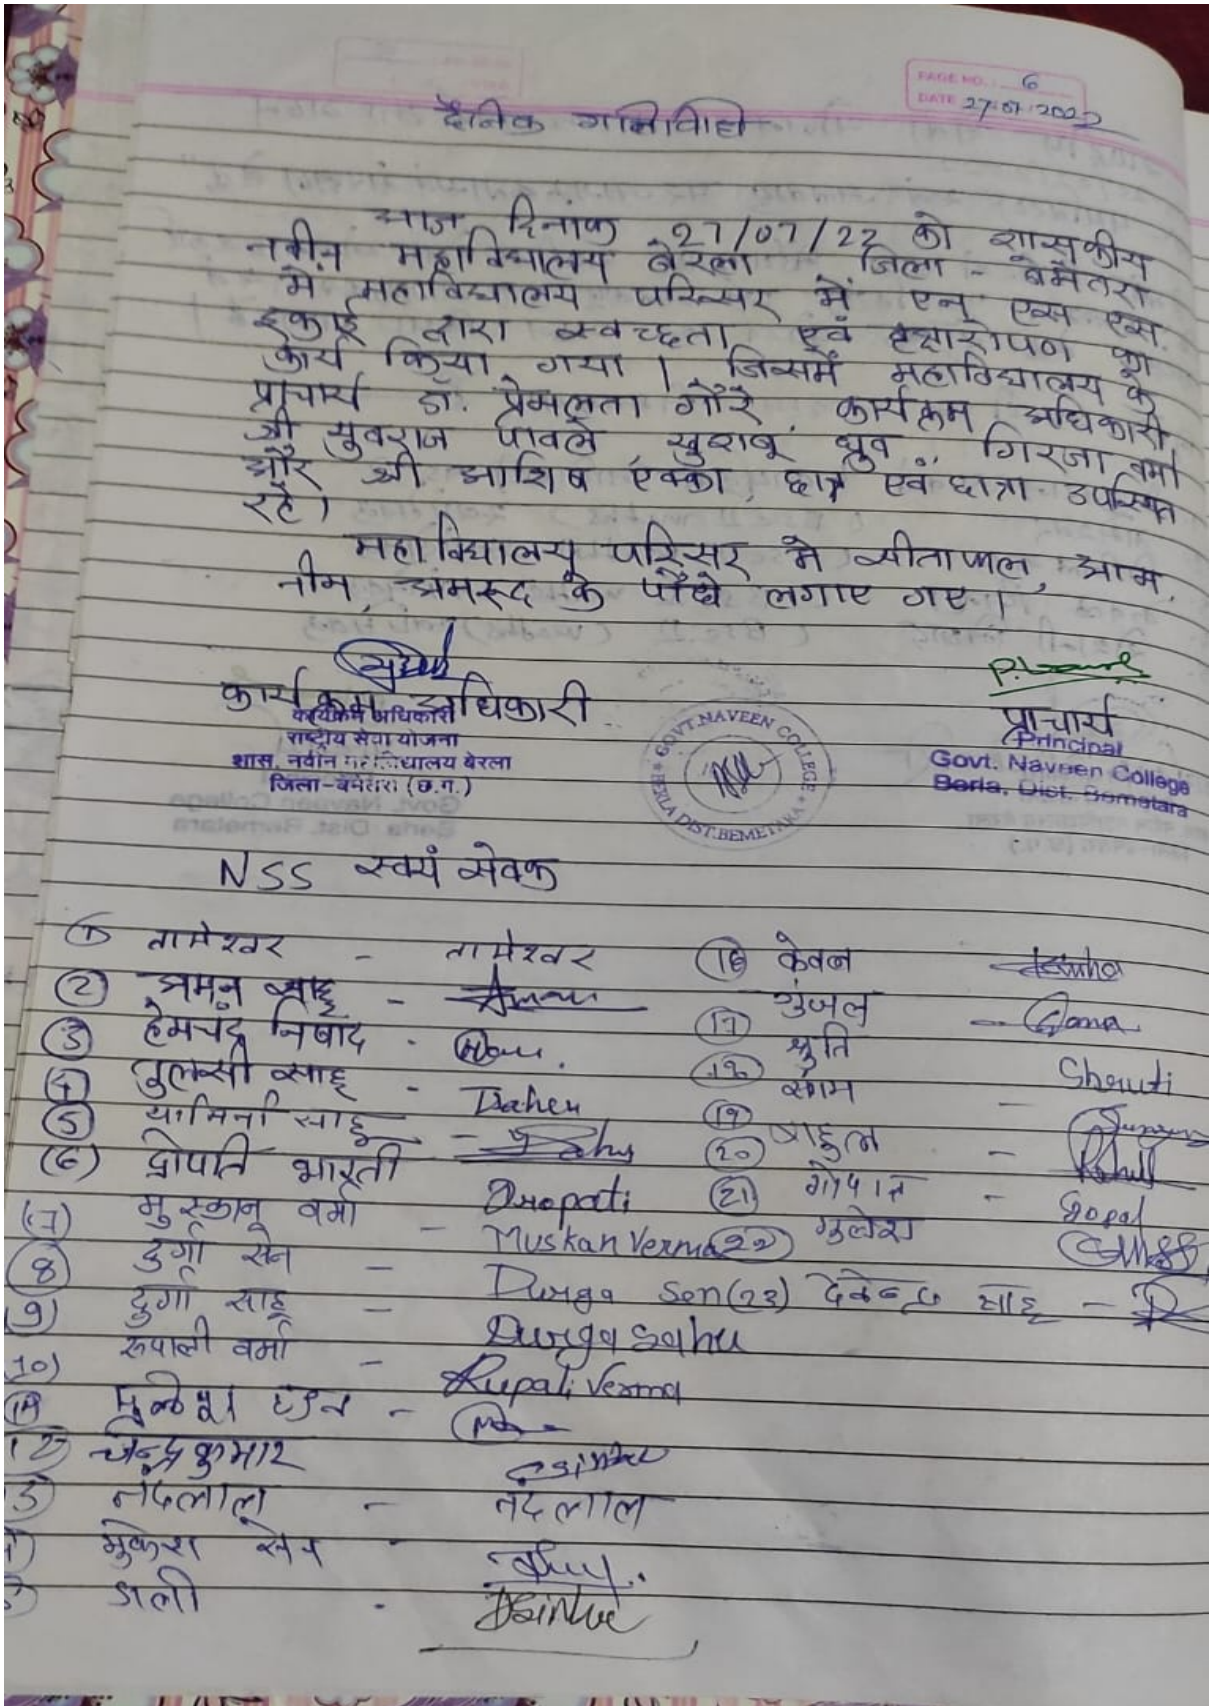 PAGE NO.: 6
DATE 27.07.2022
दैनिक गतिविधि
आज दिनांक 27/07/22 को शासकीय
नवीन महाविद्यालय बेरला जिला - बेमेतरा
में महाविद्यालय परिसर में एन एस एस
इकाई द्वारा स्वच्छता एवं वृक्षारोपण का
कार्य किया गया । जिसमें महाविद्यालय के
प्राचार्य डॉ. प्रेमलता गौरे, कार्यक्रम अधिकारी
श्री युवराज पावले खुशबू ध्रुव, गिरजा वर्मा
और श्री आशिष एक्का, छात्र एवं छात्रा उपस्थित
रहे।
महाविद्यालय परिसर मे सीताफल, आम,
नीम, अमरूद के पौधे लगाए गए।
कार्यक्रम अधिकारी
कार्यक्रम अधिकारी
राष्ट्रीय सेवा योजना
शास. नवीन महाविद्यालय बेरला
जिला-बेमेतरा (छ.ग.)
GOVT. NAVEEN COLLEGE
BERLA DIST. BEMETARA
प्राचार्य
Principal
Govt. Naveen College
Berla, Dist. Bemetara
NSS स्वयं सेवक
(1) तामेश्वर - तामेश्वर
(2) अमन साहू -
(3) हेमचंद्र निषाद -
(4) तुलसी साहू -
(5) यामिनी साहू -
(6) द्रोपति भारती Dropati
(7) मुस्कान वर्मा - Muskan Verma
(8) दुर्गा सेन - Durga Sen
(9) दुर्गा साहू - Durga Sahu
10) रुपाली वर्मा - Rupali Verma
(11)
12) चन्द्रकुमार
नंदलाल - नंदलाल
मुकेश सेन -
डाली -
(16) केवल
(17) गुंजल -
(18) श्रुति Shruti
(19) संगम -
(20) राहुल - Rahul
(21) गोपाल - Gopal
(22) गुलेश
(23) देवेन्द्र साहू -